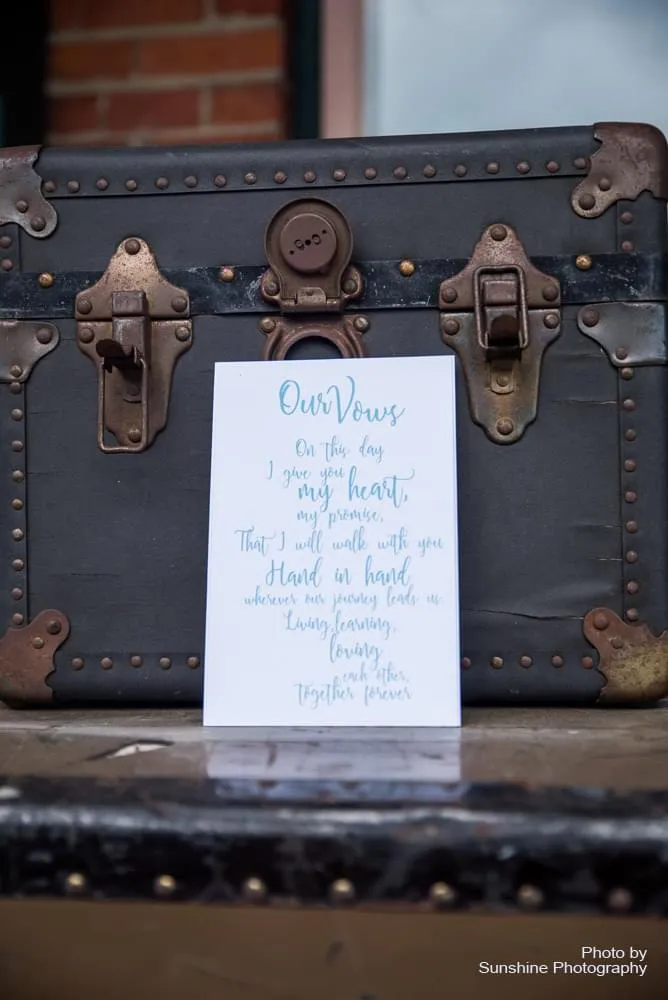 Our Vows
On this day
I give you
my heart,
my promise,
That I will walk with you
Hand in hand
wherever our journey leads us
Living, learning,
loving
each other,
together forever
Photo by
Sunshine Photography